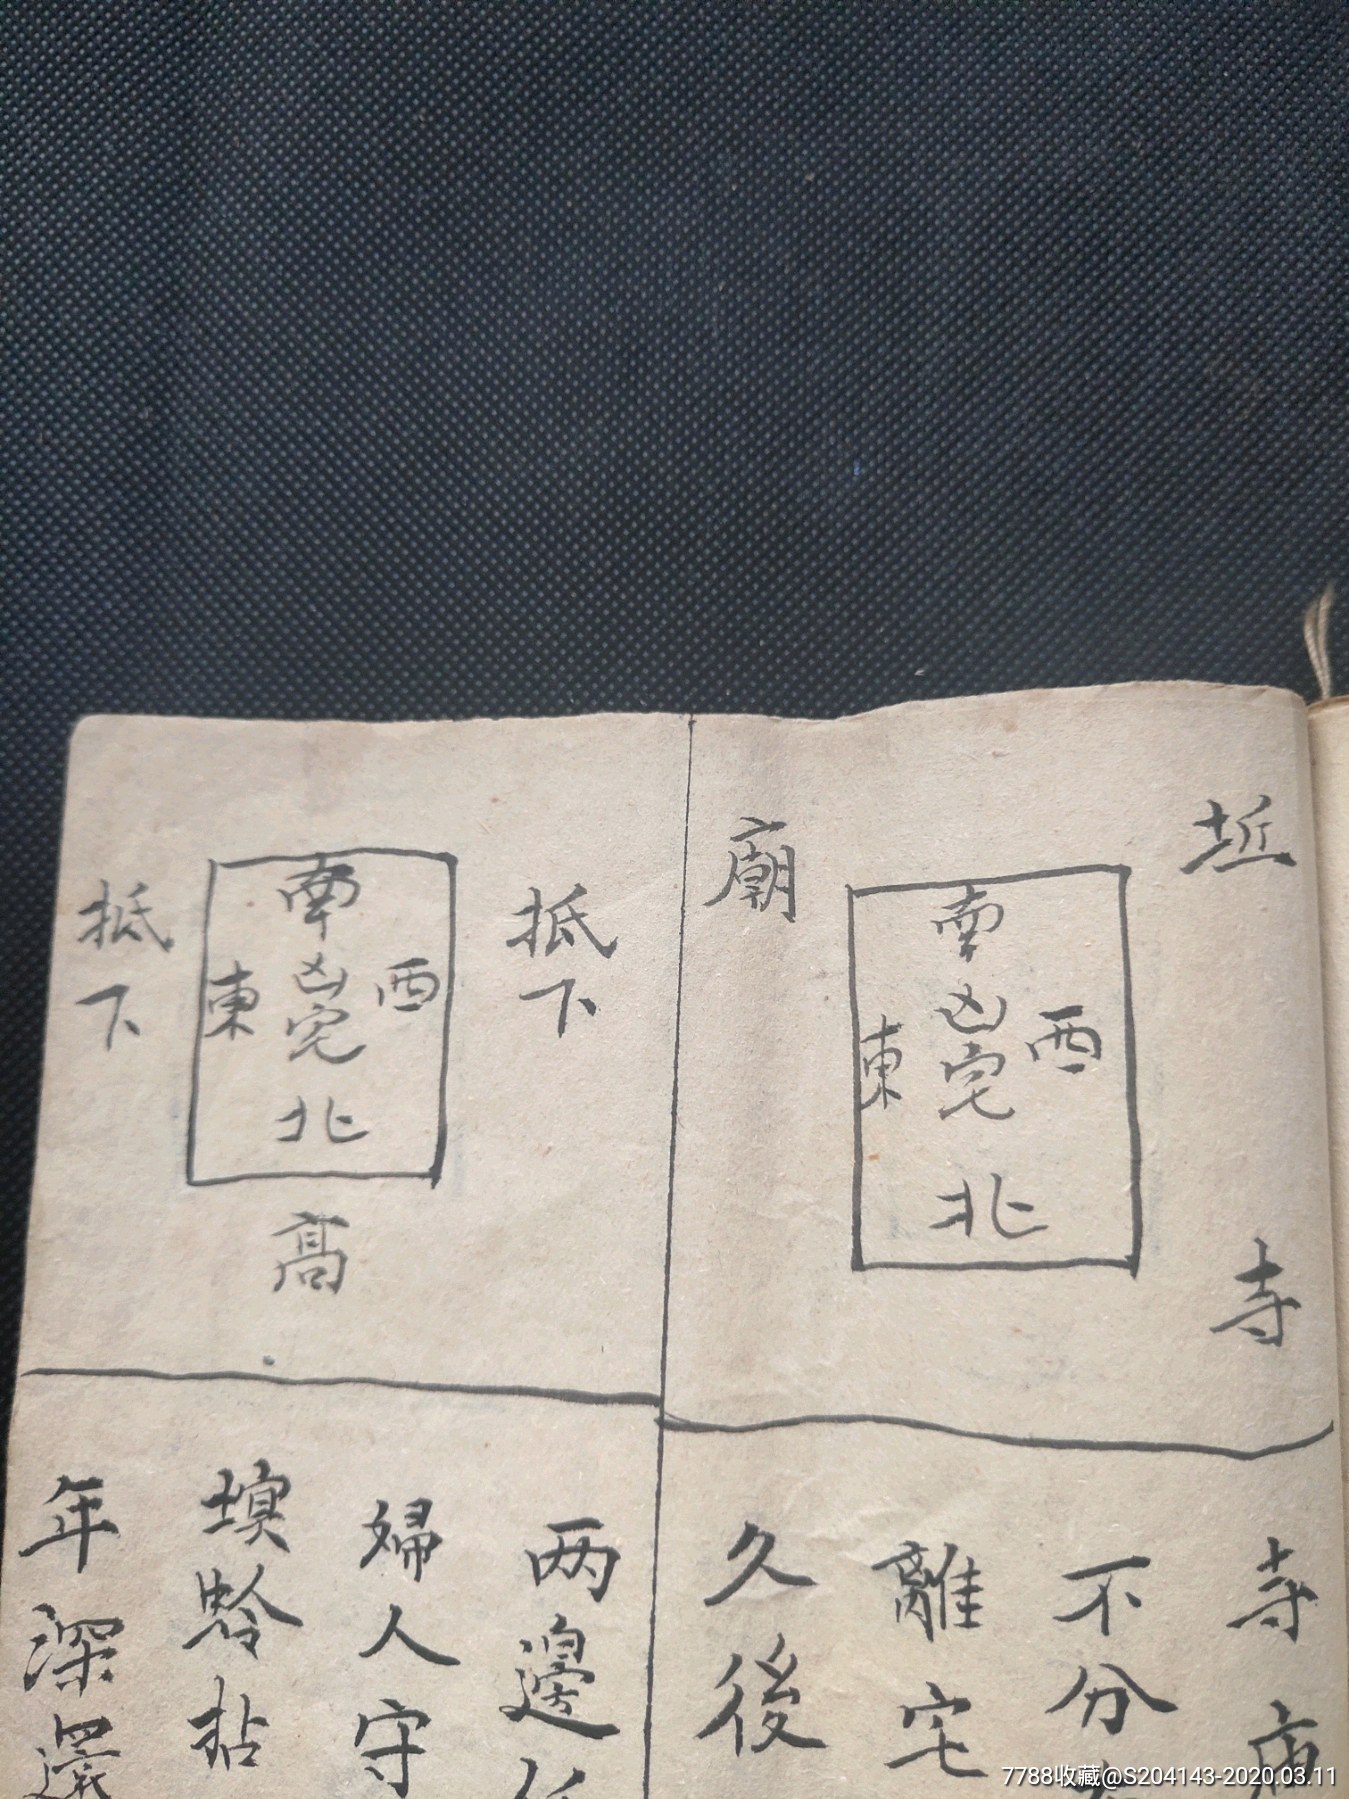 坵
寺
南
凶宅
東
西
北
廟
寺庙
不分
離宅
久後
抵下
南
凶宅
東
西
北
抵下
高
两邊
婦人守
螟蛉拈
年深還
7788收藏@S204143-2020.03.11